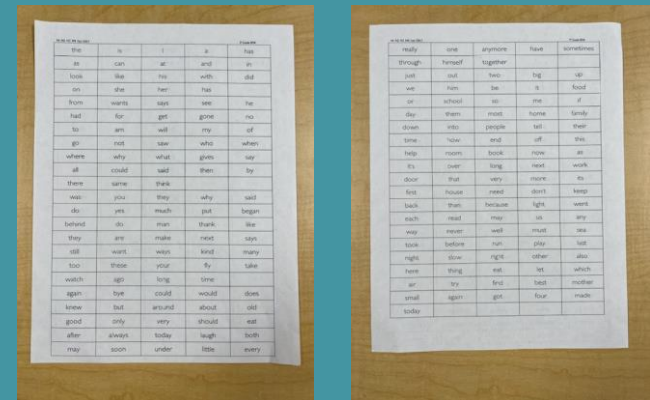 the is I a has
as can at and in
look like his with did
on she her has
from wants says see he
had for get gone no
to am will my of
go not saw who when
where why what gives say
all could said then by
there same think
was you they why said
do yes much put began
behind do man thank like
they are make next says
still want ways kind many
too these your fly take
watch ago long time
again bye could would does
knew but around about old
good only very should eat
after always today laugh both
may soon under little every
really one anymore have sometimes
through himself together
just out two big up
we him be it food
or school so me if
day them most home family
down into people tell their
time how end off this
help room book now as
it's over long next work
door that very more its
first house need don't keep
back than because light went
each read may us any
way never well must sea
took before run play last
night slow right other also
here thing eat let which
air try find best mother
small again got four made
today